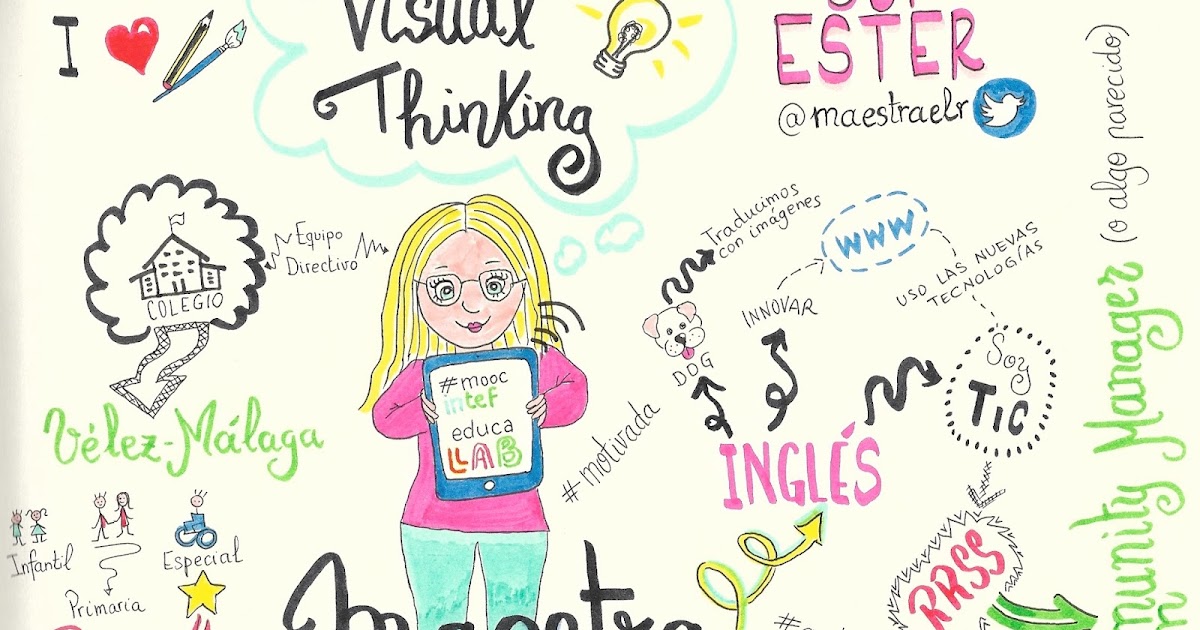 I
Visual
Thinking
Soy
ESTER
@maestraelr
(o algo parecido)
Manager
Equipo
Directivo
COLEGIO
Vélez-Málaga
Traducimos
con imágenes
www
INNOVAR
USO LAS NUEVAS
TECNOLOGÍAS
DOG
Soy
TIC
#mooc
intef
educa
LAB
#motivada
INGLÉS
Infantil
Primaria
Especial
Maestra
RRSS